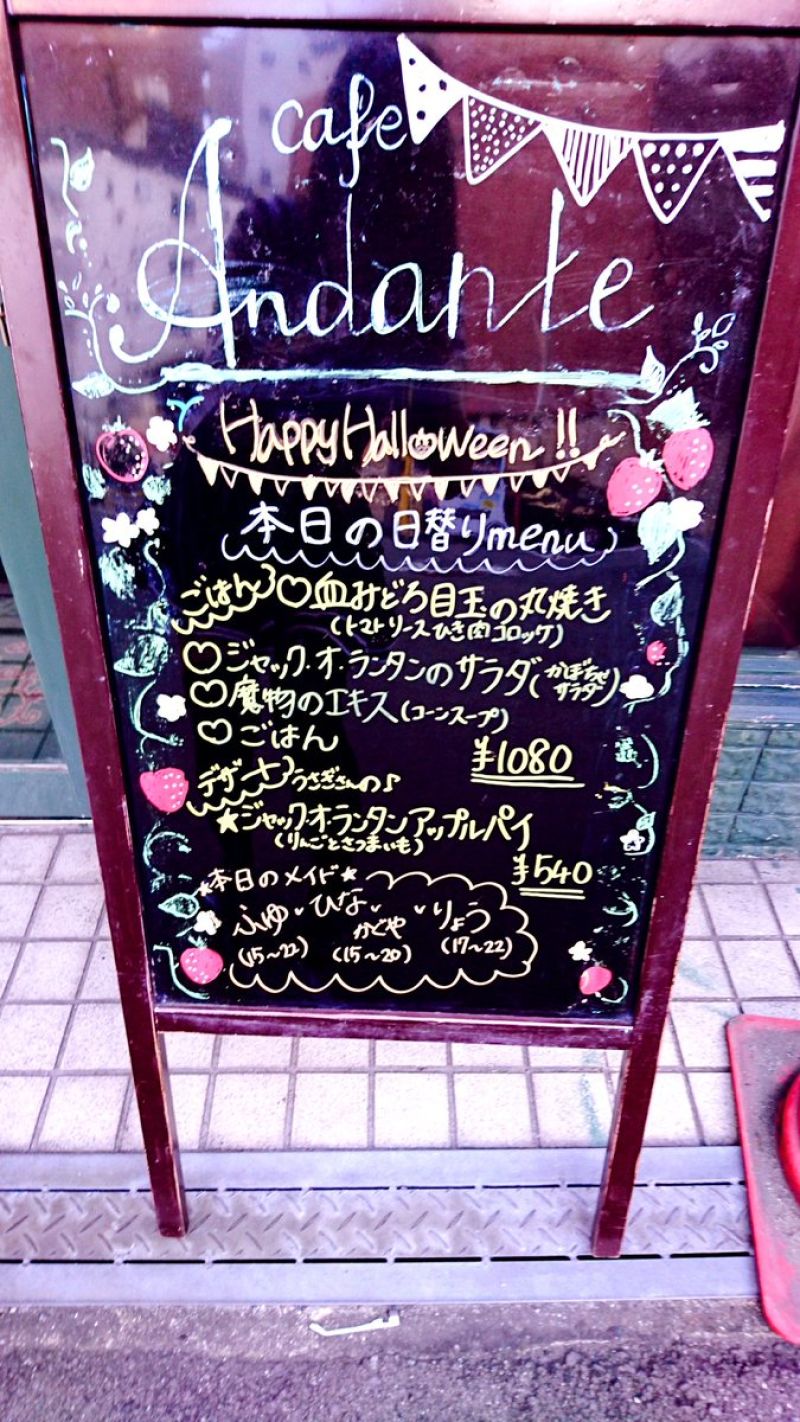 cafe
Andante
Happy Halloween!!
本日の日替りmenu
ごはん ♡血みどろ目玉の丸焼き
(トマトソースひき肉コロッケ)
♡ジャック・オ・ランタンのサラダ(かぼちゃサラダ)
♡魔物のエキス(コーンスープ)
♡ごはん
¥1080
デザート うさぎさんの♪
★ジャック・オ・ランタンアップルパイ
(りんごとさつまいも)
¥540
★本日のメイド★
ふゆ ひな かぐや りょう
(15~22) (15~20) (17~22)